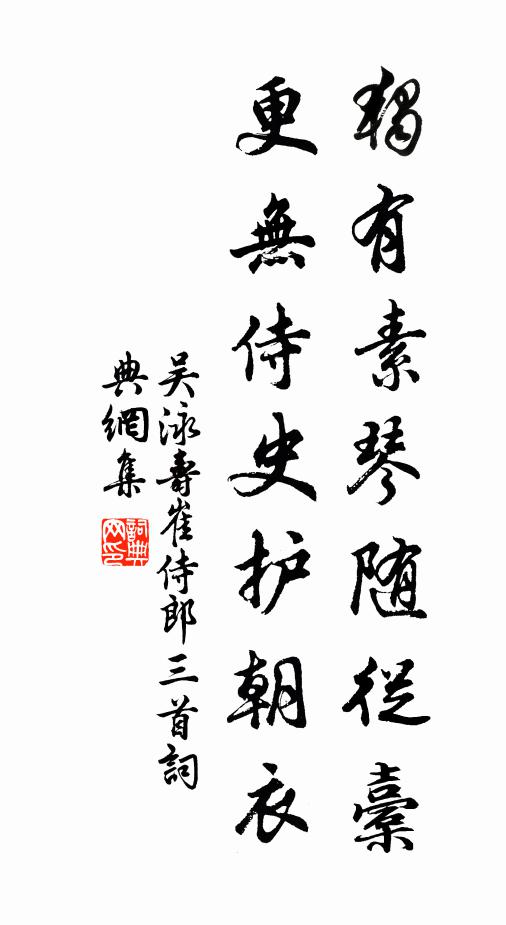 獨有素琴随從橐
更無侍史护朝衣
吴泳壽崔侍郎三首詞
典網集
詞典
网印